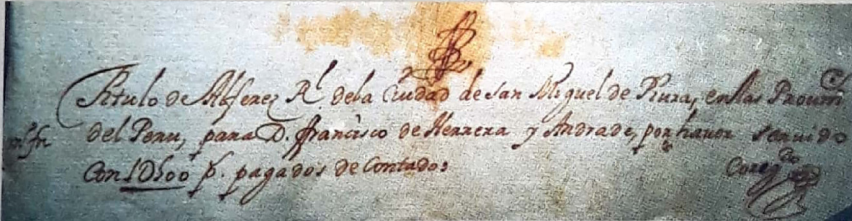 Titulo de Alferez Rl. dela Ciudad de San Miguel de Piura, enlas Prouin
del Peru, para D. francisco de Herrera y Andrade, por hauer seruido
Con 1Dhoo ps. pagados de Contado
Corexdo